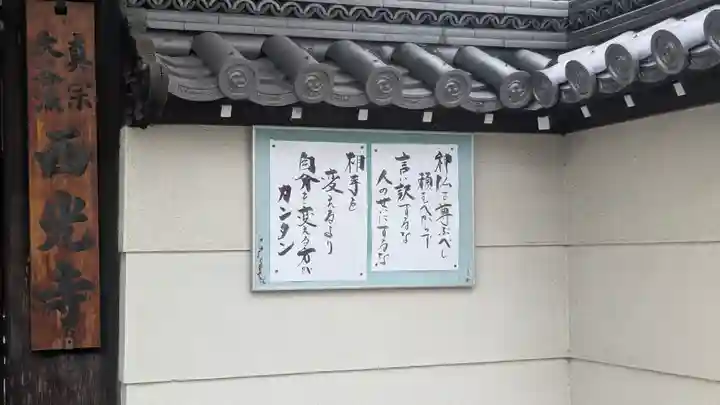 真宗
大谷派
西光寺
神仏を尊ぶべし
頼むべからず
言い訳するな
人のせいにするな
相手を
変えるより
自分を変える方が
カンタン